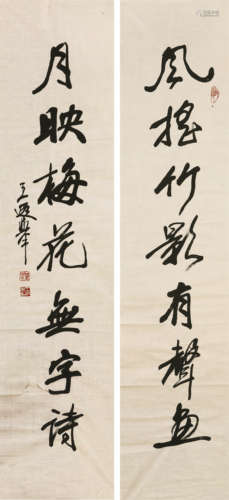 風搖竹影有聲畫
月映梅花無字詩
王遐舉